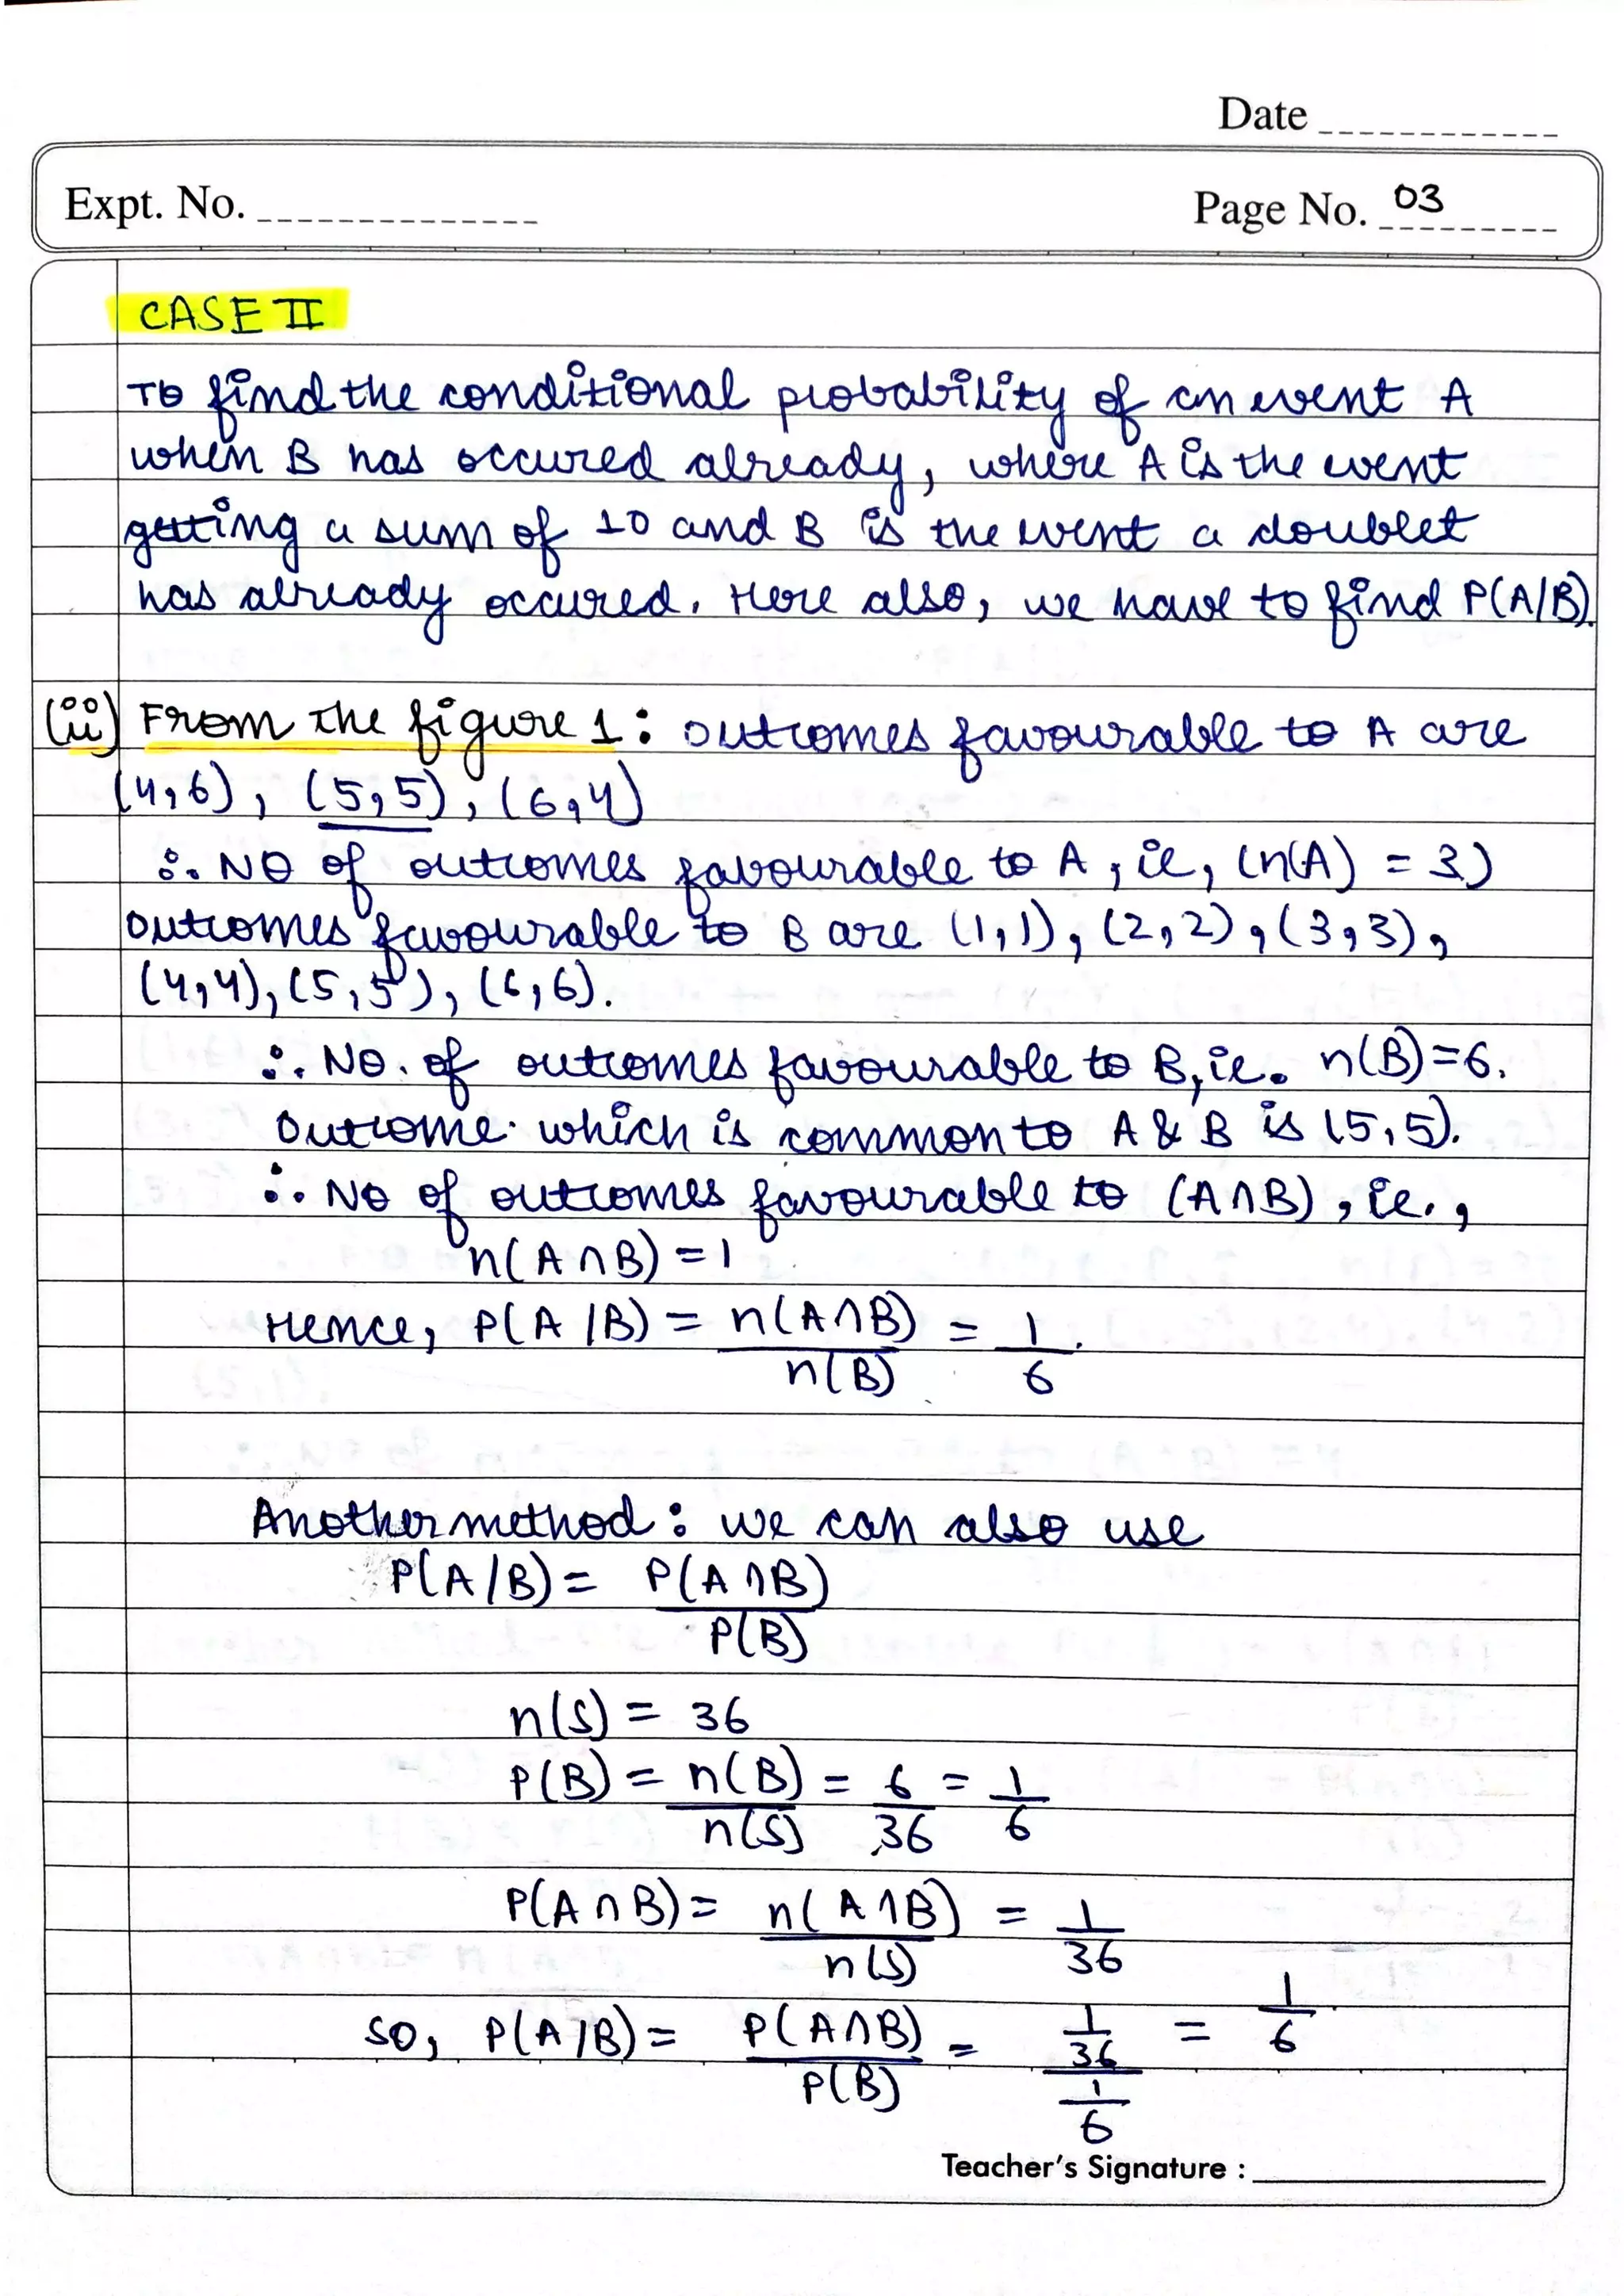 Date
Expt. No.
Page No. 03
CASE II
To find the conditional probability of an event A
when B has occured already, where A is the event
getting a sum of 10 and B is the event a doublet
has already occured. Here also, we have to find P(A/B).
(ii) From the figure 1: outcomes favourable to A are
(4,6), (5,5), (6,4)
∴ No of outcomes favourable to A, ie, (n(A) = 3)
outcomes favourable to B are (1,1), (2,2), (3,3),
(4,4), (5,5), (6,6).
∴ No. of outcomes favourable to B, ie. n(B)=6.
Outcome which is common to A & B is (5,5).
∴ No of outcomes favourable to (A∩B), ie.,
n(A∩B) = 1
Hence, P(A/B) = n(A∩B) = 1
n(B) 6
Another method: we can also use
P(A/B) = P(A∩B)
P(B)
n(S) = 36
P(B) = n(B) = 6 = 1
n(S) 36 6
P(A∩B) = n(A∩B) = 1
n(S) 36
So, P(A/B) = P(A∩B) = 1/36 = 1/6
P(B) 1/6
Teacher's Signature :